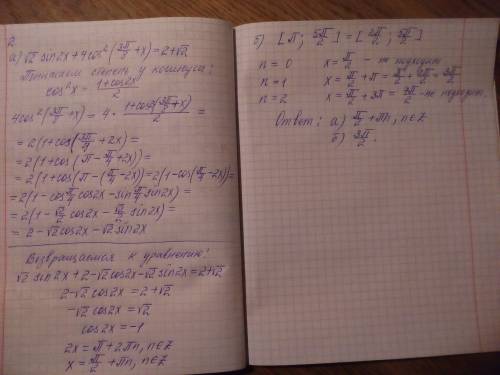 2
а) √2 sin2x + 4cos²(3π/8 + x) = 2+√2
степень у косинуса:
cos²x = (1+cos2x)/2
= 2(1+cos(3π/4 + 2x)) =
= 2(1+cos(π - π/4 + 2x)) =
= 2(1+cos(π - (π/4 - 2x)) = 2(1-cos(π/4 - 2x)) =
= 2(1 - cos π/4 cos2x - sin π/4 sin2x) =
= 2(1 - √2/2 cos2x - √2/2 sin2x) =
= 2 - √2 cos2x - √2 sin2x
Возвращаемся к уравнению:
√2 sin2x + 2 - √2 cos2x - √2 sin2x = 2+√2
2 - √2 cos2x = 2+√2
-√2 cos2x = √2
cos2x = -1
2x = π + 2πn, n∈Z
x = π/2 + πn, n∈Z
б) [π; 5π/2] = [2π/2; 5π/2]
n = 0 x = π/2 - не подходит
n = 1 x = π/2 + π = π/2 + 2π/2 = 3π/2
n = 2 - не подходит.
Ответ: а) π/2 + πn, n∈Z
б) 3π/2.